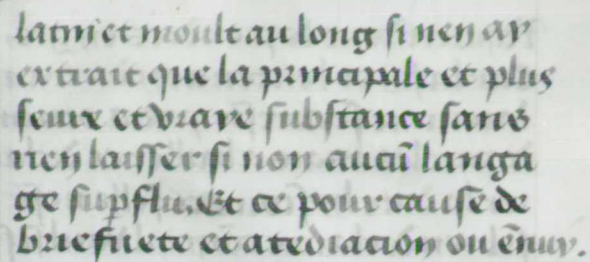 latin et moult au long si nen ay
extrait que la principale et plus
seure et vraye substance sans
rien laisser si non aucū langa
ge sup̲flu. Et ce pour cause de
briefuete et atediacion ou ēnuy.